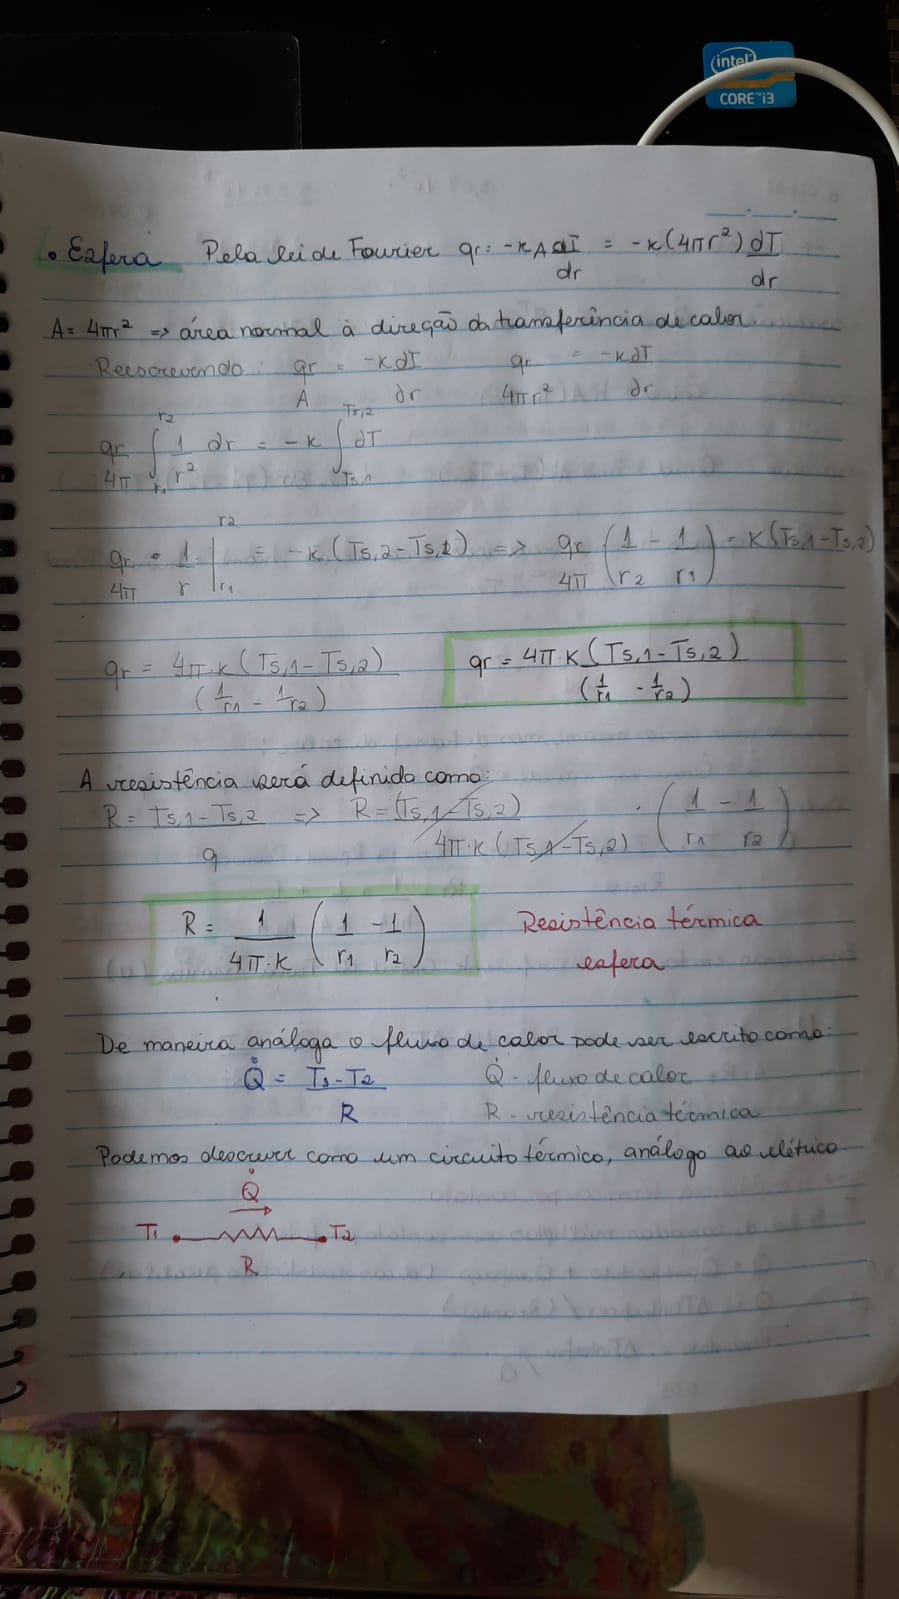 intel
CORE i3
• Esfera Pela lei de Fourier qr = -k A dT/dr = -k(4πr²) dT/dr
A = 4πr² => área normal à direção da transferência de calor.
Reescrevendo: qr/A = -k dT/dr qr/4πr² = -k dT/dr
qr/4π ∫r1^r2 1/r² dr = -k ∫Ts,1^Ts,2 dT
qr/4π • 1/r |r1^r2 = -k (Ts,2 - Ts,1) => qr/4π (1/r2 - 1/r1) = k(Ts,1 - Ts,2)
qr = 4π·k (Ts,1 - Ts,2)/(1/r1 - 1/r2) qr = 4π·k (Ts,1 - Ts,2)/(1/r1 - 1/r2)
A resistência será definido como:
R = Ts,1 - Ts,2/q => R = (Ts,1 - Ts,2)/4π·k (Ts,1 - Ts,2) · (1/r1 - 1/r2)
R = 1/4π·k (1/r1 - 1/r2) Resistência térmica
esfera
De maneira análoga o fluxo de calor pode ser escrito como:
Q̇ = T1 - T2/R Q̇ - fluxo de calor
R - resistência térmica
Podemos descrever como um circuito térmico, análogo ao elétrico
Q̇
T1 T2
R